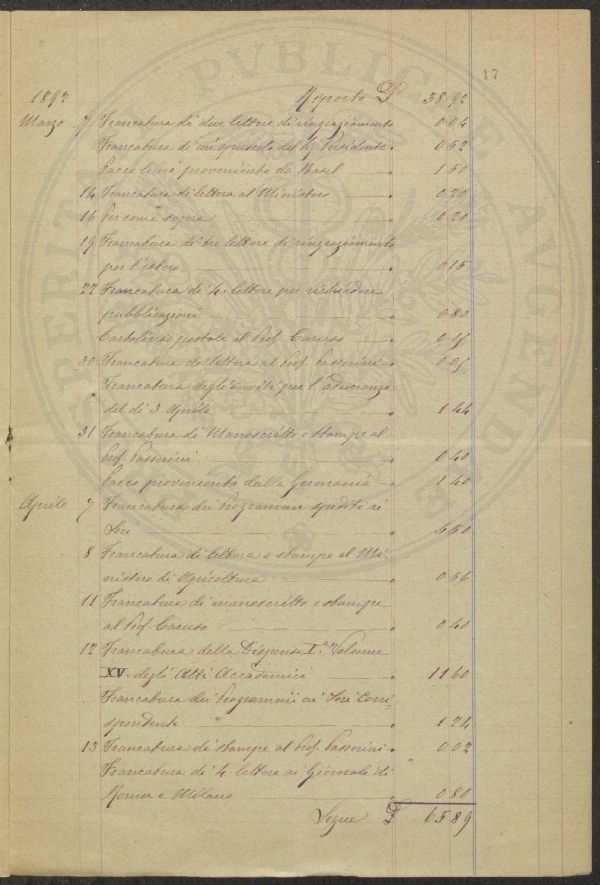 17
1892 Riporto £ 38 92
Marzo 7 Francatura di due lettere di ringraziamento 0 04
Francature di un opuscolo del Sig Presidente " 0 52
Pacco libri proveniente da Basel " 1 50
14 Francatura di lettera al Ministero " 0 20
16 Per come sopra " 0 20
19 Francatura di tre lettere di ringraziamento
per l'estero " 0 15
22 Francatura di 4 lettere per richiedere
pubblicazioni " 0 80
Cartolina postale al Prof. Caruso " 0 15
30 Francatura di lettera al Prof. Passerini " 0 05
Francatura degli Inviti per l'adunanza
del dì 3 Aprile " 1 44
31 Francatura di Manoscritto e stampe al
Prof. Passerini " 0 40
Pacco proveniente dalla Germania " 1 40
Aprile 7 Francatura dei Programmi spediti ai
Soci " 5 50
8 Francatura di lettera e stampe al Mi-
nistero di Agricoltura " 0 56
11 Francatura di manoscritto e stampe
al Prof. Caruso " 0 40
12 Francatura della Dispensa Iª Volume
XV. degli Atti Accademici " 11 60
Francatura dei Programmi ai Soci Corri-
spondenti " 1 24
13 Francatura di stampe al Prof. Passerini " 0 02
Francatura di 4 lettere ai Giornali di
Roma e Milano " 0 80
Segue £ 65 89
PROSPERITATI PVBLICAE AVGENDAE